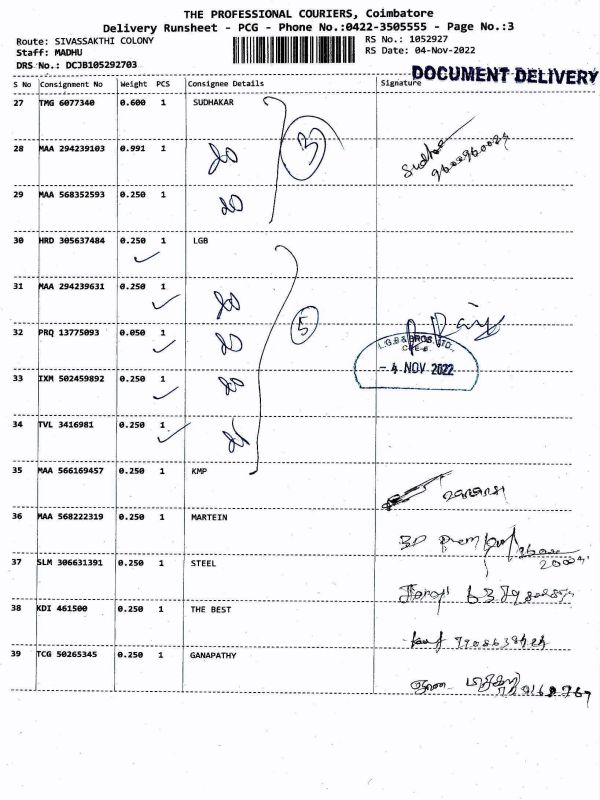 THE PROFESSIONAL COURIERS, Coimbatore
Delivery Runsheet - PCG - Phone No.:0422-3505555 - Page No.:3
Route: SIVASSAKTHI COLONY RS No.: 1052927
Staff: MADHU RS Date: 04-Nov-2022
DRS No.: DCJB105292703 DOCUMENT DELIVERY
S No Consignment No Weight PCS Consignee Details Signature
27 TMG 6077340 0.600 1 SUDHAKAR
3
28 MAA 294239103 0.991 1
29 MAA 568352593 0.250 1
30 HRD 305637484 0.250 1 LGB
31 MAA 294239631 0.250 1
5
32 PRQ 13775093 0.050 1
L.G.B & BROS. LTD.,
- 4 NOV 2022
33 IXM 502459892 0.250 1
34 TVL 3416981 0.250 1
35 MAA 566169457 0.250 1 KMP
36 MAA 568222319 0.250 1 MARTEIN
37 SLM 306631391 0.250 1 STEEL
38 KDI 461500 0.250 1 THE BEST
39 TCG 50265345 0.250 1 GANAPATHY